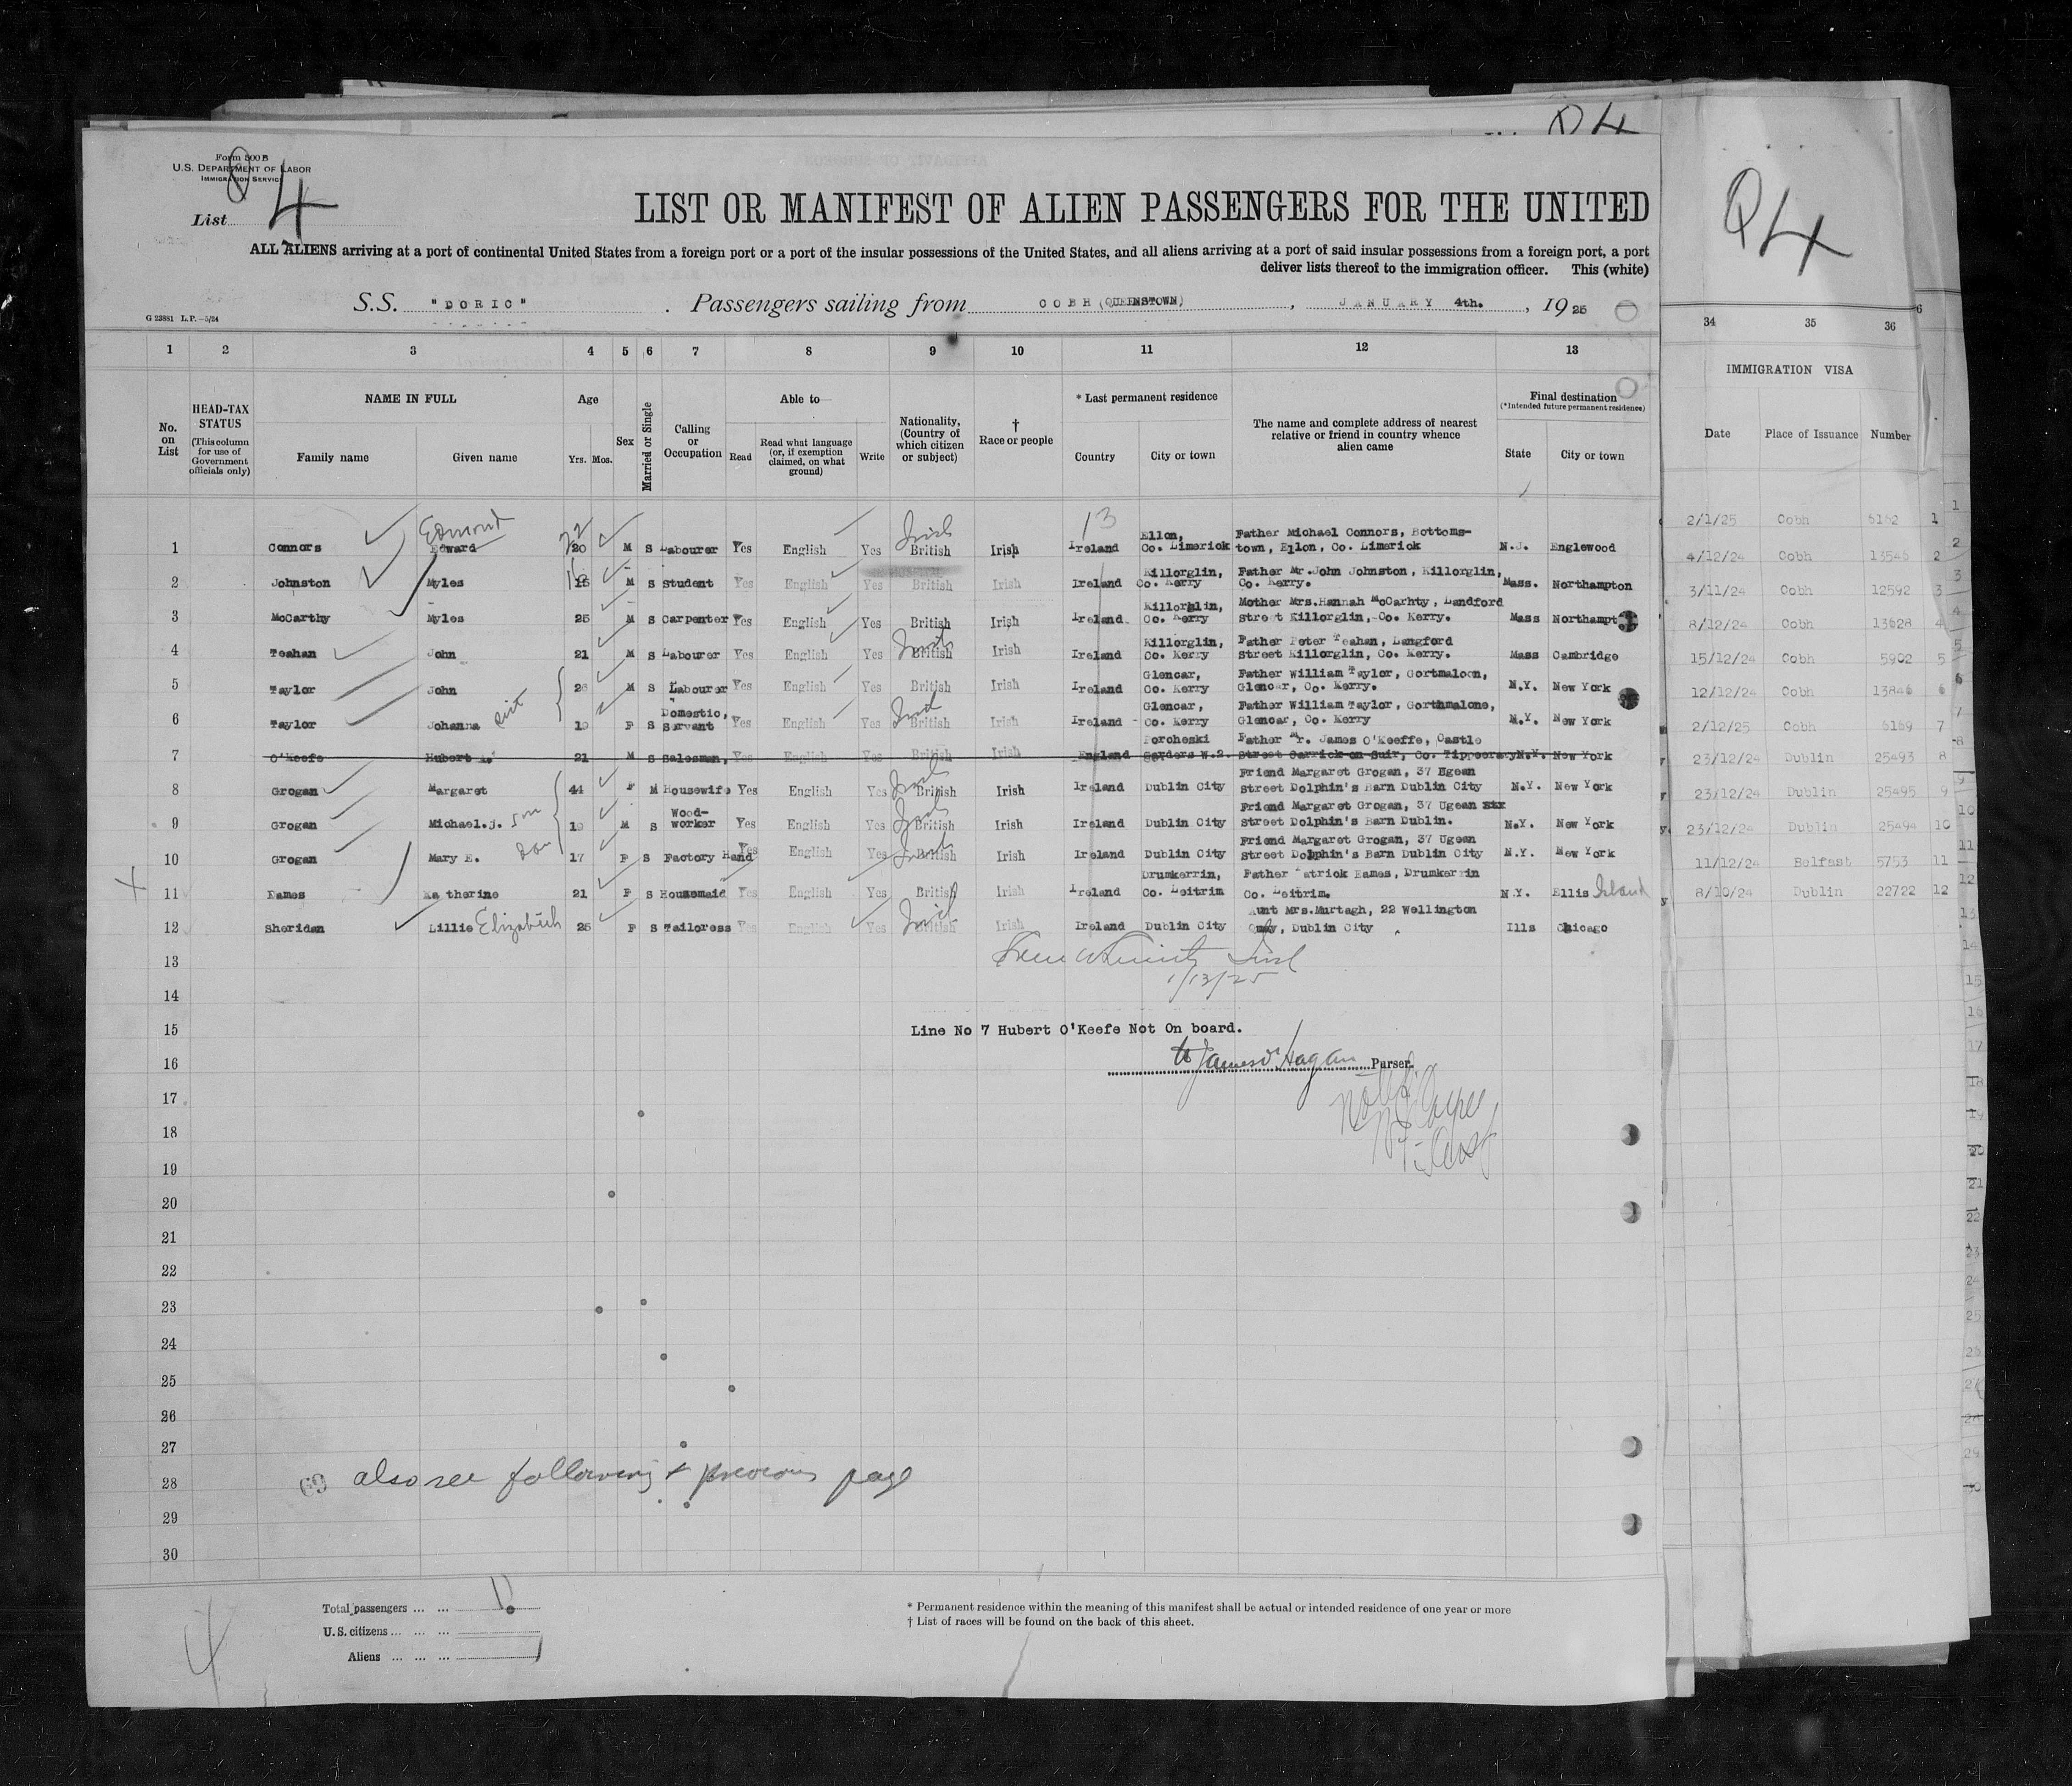 Form 500 B
U.S. DEPARTMENT OF LABOR
IMMIGRATION SERVICE
List 4
Q4
LIST OR MANIFEST OF ALIEN PASSENGERS FOR THE UNITED
ALL ALIENS arriving at a port of continental United States from a foreign port or a port of the insular possessions of the United States, and all aliens arriving at a port of said insular possessions from a foreign port, a port
deliver lists thereof to the immigration officer. This (white)
S.S. "DORIC". Passengers sailing from COBH (QUEENSTOWN), JANUARY 4th., 1925
G 23881 L.P.—5/24
1 2 3 4 5 6 7 8 9 10 11 12 13
No. on List
HEAD-TAX STATUS (This column for use of Government officials only)
NAME IN FULL Family name Given name
Age Yrs. Mos.
Sex
Married or Single
Calling or Occupation
Able to— Read Read what language (or, if exemption claimed, on what ground) Write
Nationality, (Country of which citizen or subject)
† Race or people
* Last permanent residence Country City or town
The name and complete address of nearest relative or friend in country whence alien came
Final destination (*Intended future permanent residence) State City or town
Edmond 22 Irish 13
1 Connors Edward 20 M S Labourer Yes English Yes British Irish Ireland Ellon, Co. Limerick Father Michael Connors, Bottoms-town, Ellon, Co. Limerick N.J. Englewood
2 Johnston Myles M S Student Yes English Yes British Irish Ireland Killorglin, Co. Kerry Father Mr.John Johnston, Killorglin, Co. Kerry. Mass. Northampton
3 McCarthy Myles 25 M S Carpenter Yes English Yes British Irish Ireland Killorglin, Co. Kerry Mother Mrs.Hannah McCarhty, Landford Street Killorglin, Co. Kerry. Mass Northampt
4 Teahan John 21 M S Labourer Yes English Yes Irish British Irish Ireland Killorglin, Co. Kerry Father Peter Teahan, Langford Street Killorglin, Co. Kerry. Mass Cambridge
5 Taylor John 26 M S Labourer Yes English Yes British Irish Ireland Glencar, Co. Kerry Father William Taylor, Gortmaloon, Glencar, Co. Kerry. N.Y. New York
6 Taylor Johanna sist 19 F S Domestic, Servant Yes English Yes Irish British Irish Ireland Glencar, Co. Kerry Father William Taylor, Gorthmalone, Glencar, Co. Kerry N.Y. New York
7 O'Keefe Hubert 21 M S Salesman, Yes English Yes British Irish England Porcheski Gardens W.2. Father Mr. James O'Keeffe, Castle Street Carrick-on-Suir, Co. Tipperary N.Y. New York
8 Grogan Margaret 44 F M Housewife Yes English Yes Irish British Irish Ireland Dublin City Friend Margaret Grogan, 37 Ugean Street Dolphin's Barn Dublin City N.Y. New York
9 Grogan Michael.J. son 19 M S Wood-worker Yes English Yes Irish British Irish Ireland Dublin City Friend Margaret Grogan, 37 Ugean Street Dolphin's Barn Dublin. N.Y. New York
10 Grogan Mary E. Dau 17 F S Factory Hand Yes English Yes Irish British Irish Ireland Dublin City Friend Margaret Grogan, 37 Ugean Street Dolphin's Barn Dublin City N.Y. New York
11 Eames Katherine 21 F S Housemaid Yes English Yes British Irish Ireland Drumkerrin, Co. Leitrim Father Patrick Eames, Drumkerrin Co. Leitrim. N.Y. Ellis Island
12 Sheridan Lillie Elizabeth 25 F S Tailoress Yes English Yes Irish British Irish Ireland Dublin City Aunt Mrs.Murtagh, 22 Wellington Quay, Dublin City Ills Chicago
13
1/13/25
14
15 Line No 7 Hubert O'Keefe Not On board.
16 Purser.
17
18
19
20
21
22
23
24
25
26
27
28 69 also see following & previous page
29
30
Total passengers
U.S. citizens
Aliens
4
* Permanent residence within the meaning of this manifest shall be actual or intended residence of one year or more
† List of races will be found on the back of this sheet.
Q4
34 35 36
IMMIGRATION VISA
Date Place of Issuance Number
2/1/25 Cobh 6162 1
4/12/24 Cobh 13546 2
3/11/24 Cobh 12592 3
8/12/24 Cobh 13628 4
15/12/24 Cobh 5902 5
12/12/24 Cobh 13846 6
2/12/25 Cobh 6169 7
23/12/24 Dublin 25493 8
23/12/24 Dublin 25495 9
23/12/24 Dublin 25494 10
11/12/24 Belfast 5753 11
8/10/24 Dublin 22722 12